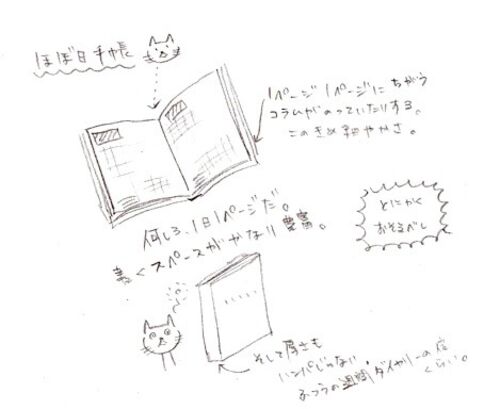 ほぼ日手帳
1ページ1ページにちがう
コラムがのっていたりする。
このきめ細やかさ。
何しろ、1日1ページだ。
書くスペースがかなり豊富。
とにかく
おそるべし
そして厚さも
ハンパじゃない。
ふつうの週間ダイヤリーの倍
くらい。